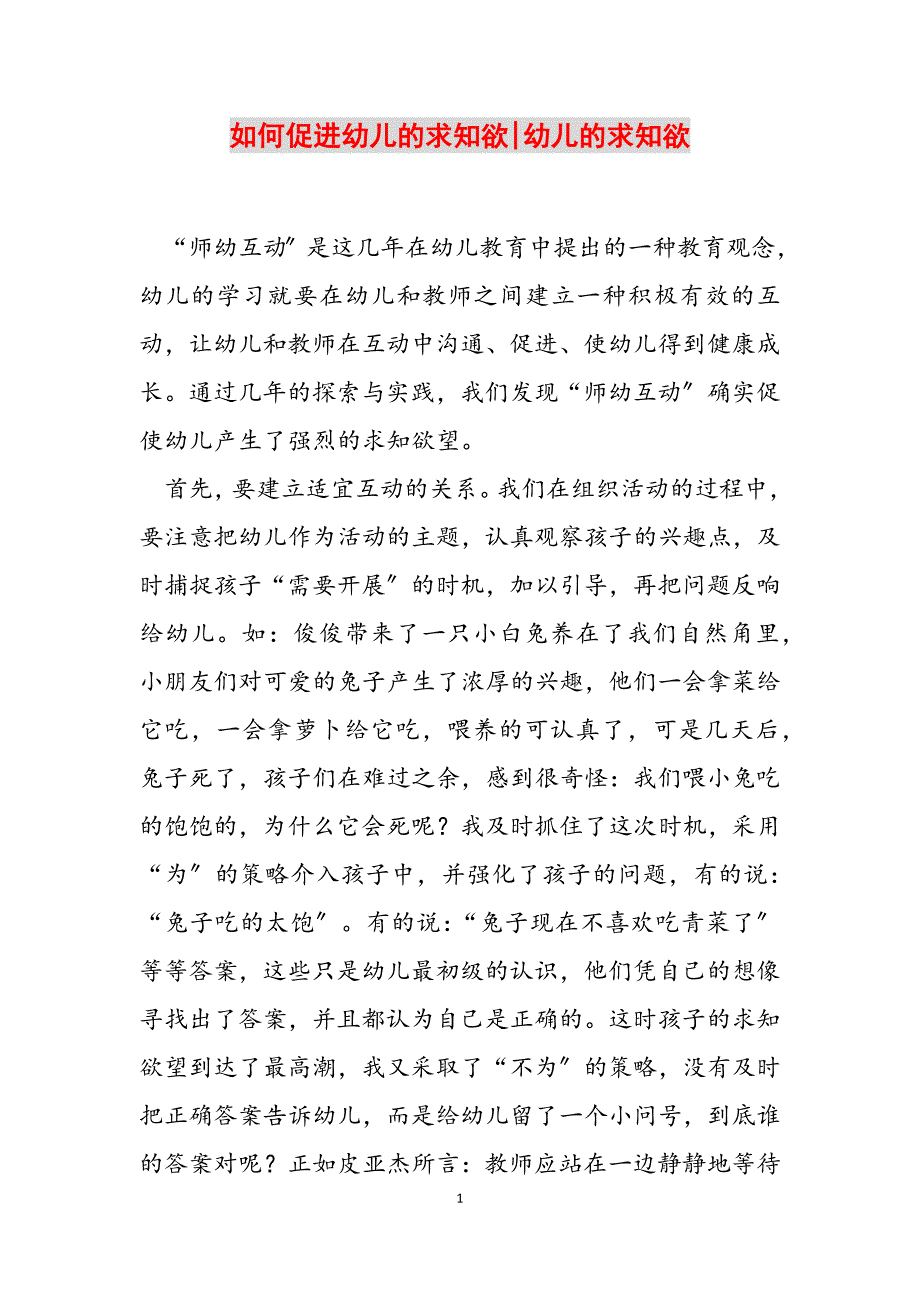 如何促进幼儿的求知欲|幼儿的求知欲
“师幼互动〞是这几年在幼儿教育中提出的一种教育观念，
幼儿的学习就要在幼儿和教师之间建立一种积极有效的互
动，让幼儿和教师在互动中沟通、促进、使幼儿得到健康成
长。通过几年的探索与实践，我们发现“师幼互动〞确实促
使幼儿产生了强烈的求知欲望。
首先，要建立适宜互动的关系。我们在组织活动的过程中，
要注意把幼儿作为活动的主题，认真观察孩子的兴趣点，及
时捕捉孩子“需要开展〞的时机，加以引导，再把问题反响
给幼儿。如：俊俊带来了一只小白兔养在了我们自然角里，
小朋友们对可爱的兔子产生了浓厚的兴趣，他们一会拿菜给
它吃，一会拿萝卜给它吃，喂养的可认真了，可是几天后，
兔子死了，孩子们在难过之余，感到很奇怪：我们喂小兔吃
的饱饱的，为什么它会死呢？我及时抓住了这次时机，采用
“为〞的策略介入孩子中，并强化了孩子的问题，有的说：
“兔子吃的太饱〞。有的说：“兔子现在不喜欢吃青菜了〞
等等答案，这些只是幼儿最初级的认识，他们凭自己的想像
寻找出了答案，并且都认为自己是正确的。这时孩子的求知
欲望到达了最高潮，我又采取了“不为〞的策略，没有及时
把正确答案告诉幼儿，而是给幼儿留了一个小问号，到底谁
的答案对呢？正如皮亚杰所言：教师应站在一边静静地等待
1